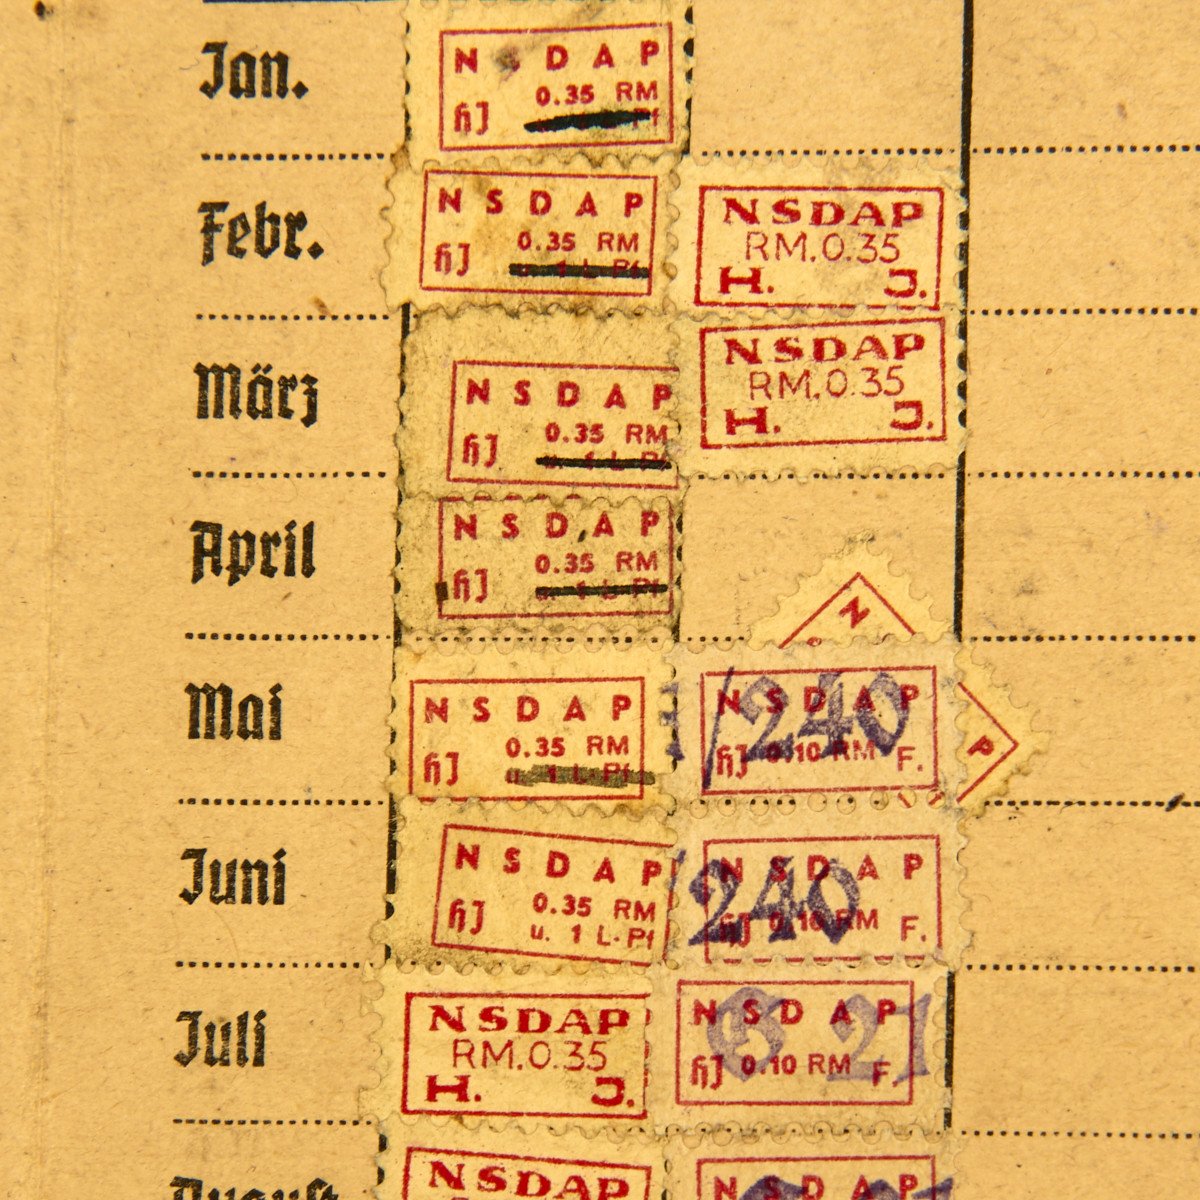 Jan.
N S D A P
0.35 RM
HJ
Febr.
N S D A P
0.35 RM
HJ u. 1 L-Pf
NSDAP
RM.0.35
H. J.
März
N S D A P
0.35 RM
HJ u. 1 L-Pf
NSDAP
RM.0.35
H. J.
April
N S D A P
0.35 RM
HJ u. 1 L-Pf
N
Mai
N S D A P
0.35 RM
HJ u. 1 L-Pf
/240
N S D A P
HJ 0.10 RM F.
P
Juni
N S D A P
0.35 RM
HJ u. 1 L-Pf
/240
N S D A P
HJ 0.10 RM F.
Juli
NSDAP
RM.0.35
H. J.
N S D A P
HJ 0.10 RM F.
August
NSDAP
N S D A P